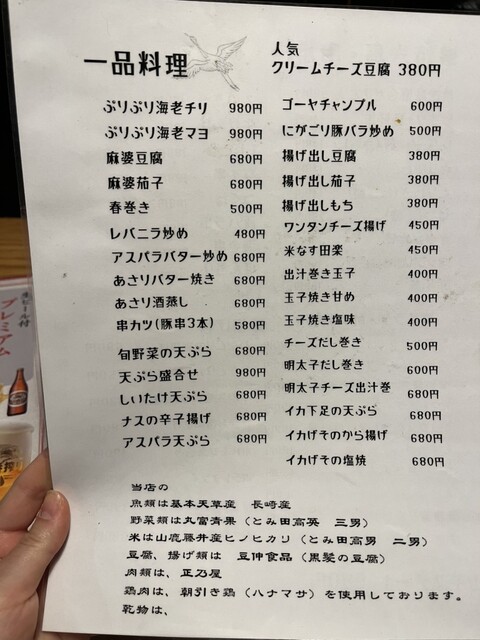 一品料理
ぷりぷり海老チリ 980円
ぷりぷり海老マヨ 980円
麻婆豆腐 680円
麻婆茄子 680円
春巻き 500円
レバニラ炒め 480円
アスパラバター炒め 680円
あさりバター焼き 680円
あさり酒蒸し 680円
串カツ(豚串3本) 580円
旬野菜の天ぷら 680円
天ぷら盛合せ 980円
しいたけ天ぷら 680円
ナスの辛子揚げ 680円
アスパラ天ぷら 680円
人気
クリームチーズ豆腐 380円
ゴーヤチャンプル 600円
にがごり豚バラ炒め 500円
揚げ出し豆腐 380円
揚げ出し茄子 380円
揚げ出しもち 380円
ワンタンチーズ揚げ 450円
米なす田楽 450円
出汁巻き玉子 400円
玉子焼き甘め 400円
玉子焼き塩味 400円
チーズだし巻き 500円
明太子だし巻き 600円
明太子チーズ出汁巻 680円
イカ下足の天ぷら 680円
イカげそのから揚げ 680円
イカげその塩焼 680円
当店の
魚類は基本天草産 長崎産
野菜類は丸富青果(とみ田高英 三男)
米は山鹿藤井産ヒノヒカリ(とみ田高男 二男)
豆腐、揚げ類は 豆伸食品(黒髪の豆腐)
肉類は、正乃屋
鶏肉は、朝引き鶏(ハナマサ)を使用しております。
乾物は、
生ビール付
プレミアム